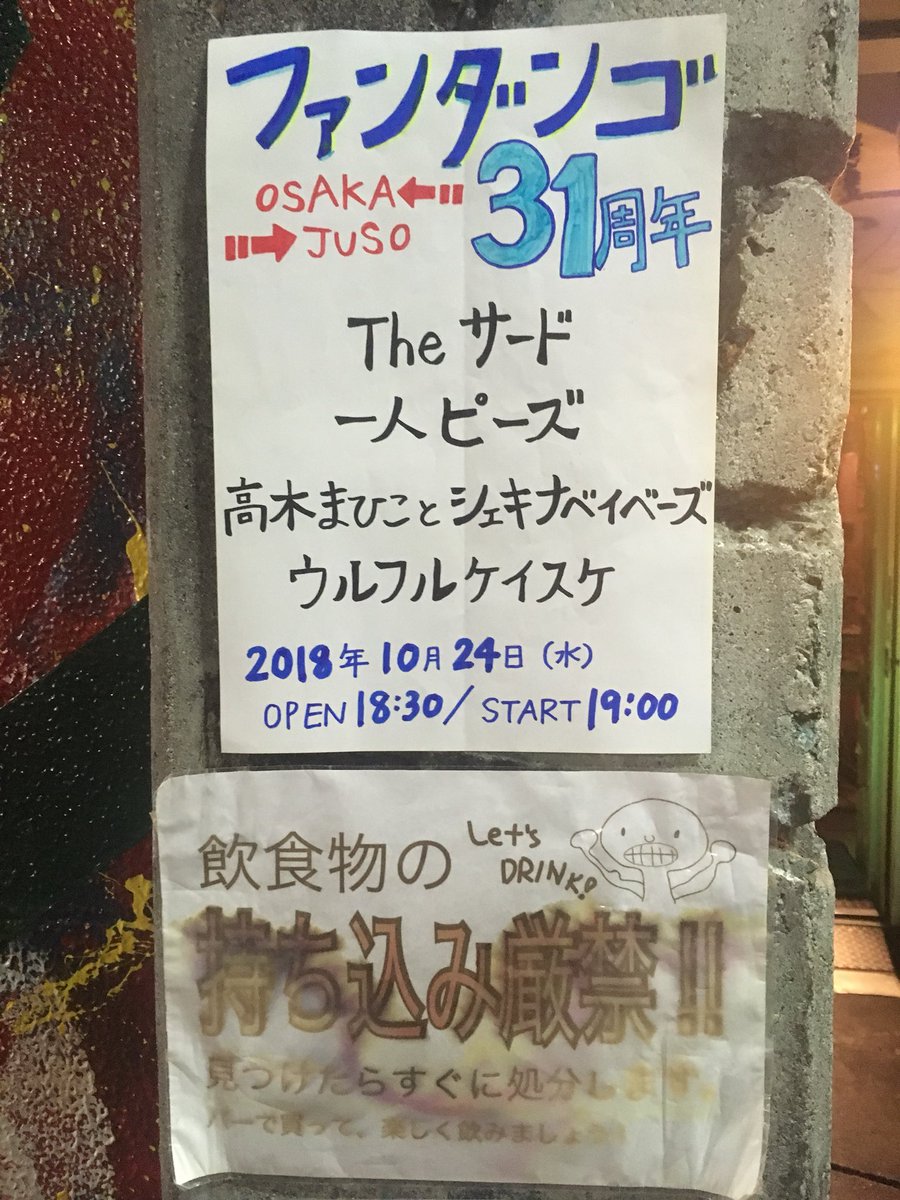 ファンダンゴ
31周年
OSAKA
JUSO
The サード
一人ピーズ
高木まひことシェキナベイベーズ
ウルフルケイスケ
2018年10月24日(水)
OPEN 18:30/START 19:00
飲食物の
Let's
DRINK!
持ち込み厳禁!!
見つけたらすぐに処分します。
バーで買って、楽しく飲みましょう!